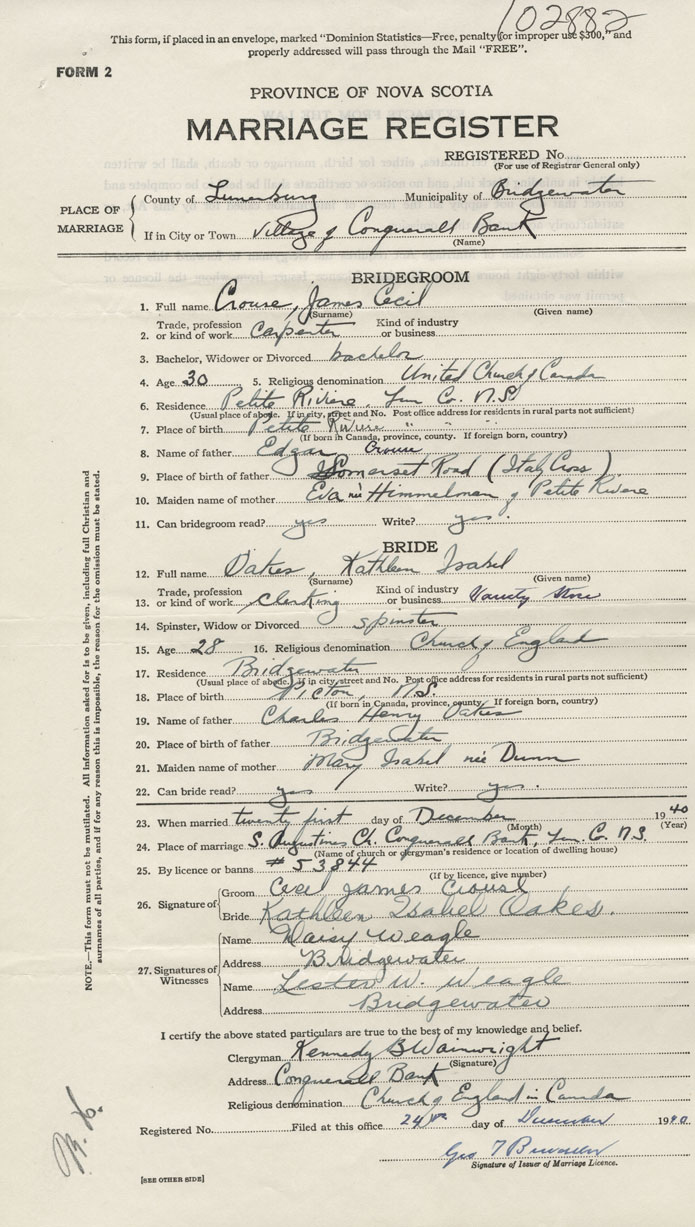 102882
This form, if placed in an envelope, marked "Dominion Statistics—Free, penalty for improper use $300," and
properly addressed will pass through the Mail "FREE".
FORM 2
PROVINCE OF NOVA SCOTIA
MARRIAGE REGISTER
REGISTERED No.
(For use of Registrar General only)
PLACE OF MARRIAGE
County of Lunenburg Municipality of Bridgewater
If in City or Town Village of Conquerall Bank
(Name)
BRIDEGROOM
1. Full name Crouse, James Cecil
(Surname) (Given name)
2. Trade, profession or kind of work Carpenter Kind of industry or business
3. Bachelor, Widower or Divorced bachelor
4. Age 30 5. Religious denomination United Church of Canada
6. Residence Petite Riviere, Lun Co. N.S.
(Usual place of abode. If in city, street and No. Post office address for residents in rural parts not sufficient)
7. Place of birth Petite Riviere " " "
(If born in Canada, province, county. If foreign born, country)
8. Name of father Edgar Crouse
9. Place of birth of father Somerset Road (Italy Cross)
10. Maiden name of mother Eva née Himmelman of Petite Riviere
11. Can bridegroom read? yes Write? yes.
BRIDE
12. Full name Oakes, Kathleen Isabel
(Surname) (Given name)
13. Trade, profession or kind of work Clerking Kind of industry or business Variety Store
14. Spinster, Widow or Divorced spinster
15. Age 28 16. Religious denomination Church of England
17. Residence Bridgewater
(Usual place of abode. If in city, street and No. Post office address for residents in rural parts not sufficient)
18. Place of birth Picton, N.S.
(If born in Canada, province, county. If foreign born, country)
19. Name of father Charles Henry Oakes
20. Place of birth of father Bridgewater
21. Maiden name of mother Mary Isabel née Dunn
22. Can bride read? yes Write? yes.
23. When married twenty first day of December 1940
(Month) (Year)
24. Place of marriage S. Augustines Ch. Conquerall Bank, Lun. Co. N.S.
(Name of church or clergyman's residence or location of dwelling house)
25. By licence or banns # 53844
(If by licence, give number)
26. Signature of
Groom Cecil James Crouse
Bride Kathleen Isabel Oakes.
27. Signatures of Witnesses
Name Daisy Weagle
Address Bridgewater
Name Lester W. Weagle
Address Bridgewater
I certify the above stated particulars are true to the best of my knowledge and belief.
Clergyman Kennedy B Wainwright
(Signature)
Address Conquerall Bank
Religious denomination Church of England in Canada
Registered No. Filed at this office 24th day of December 1940
Geo T
Signature of Issuer of Marriage Licence.
[SEE OTHER SIDE]
NOTE.—This form must not be mutilated. All information asked for is to be given, including full Christian and
surnames of all parties, and if for any reason this is impossible, the reason for the omission must be stated.